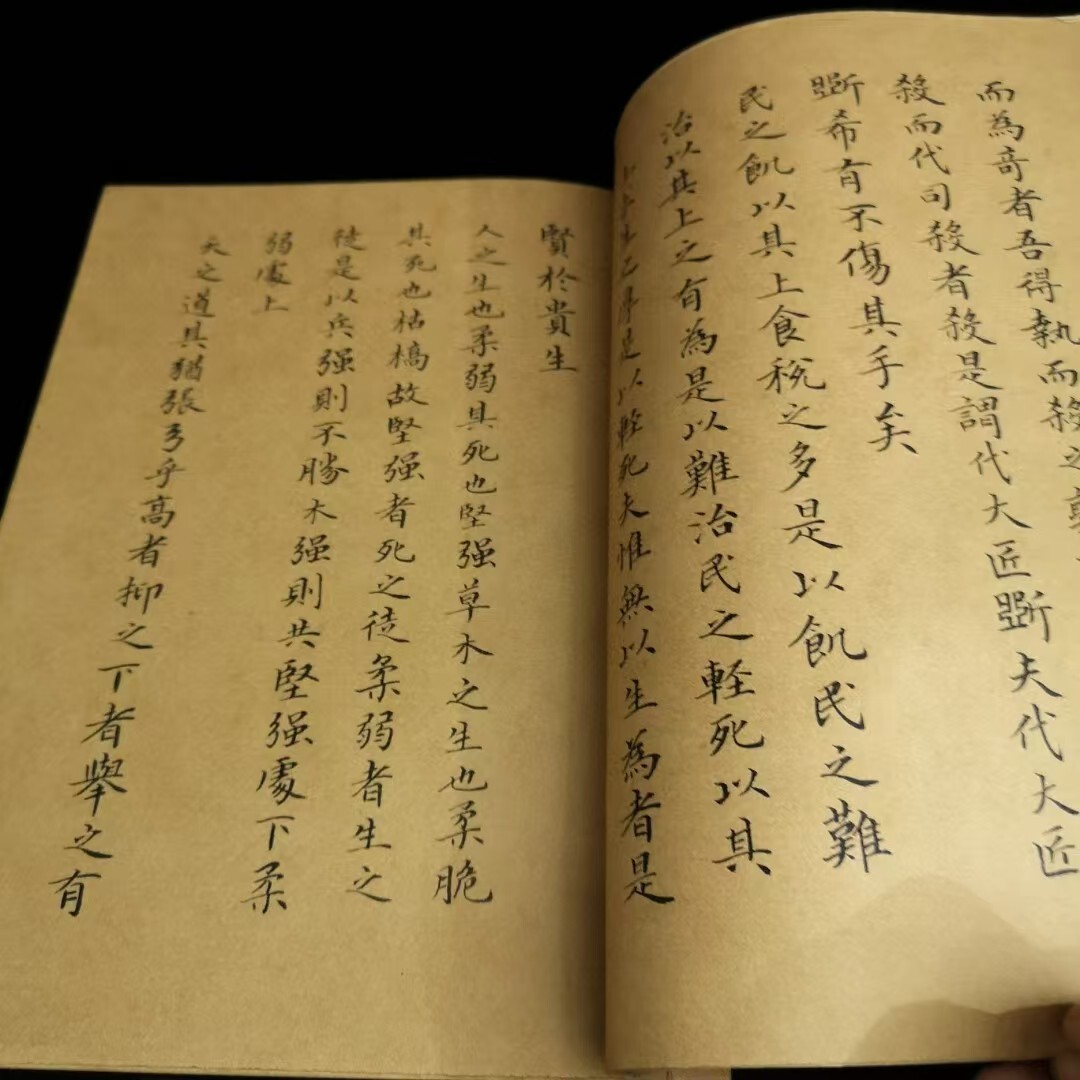 而為奇者吾得執而殺之孰
殺而代司殺者殺是謂代大匠斲夫代大匠
斲希有不傷其手矣
民之飢以其上食稅之多是以飢民之難
治以其上之有為是以難治民之軽死以其
生之厚是以軽死夫惟無以生為者是
賢於貴生
人之生也柔弱其死也堅强草木之生也柔脆
其死也枯槁故堅强者死之徒柔弱者生之
徒是以兵强則不勝木强則共堅强處下柔
弱處上
天之道其猶張弓乎髙者抑之下者舉之有